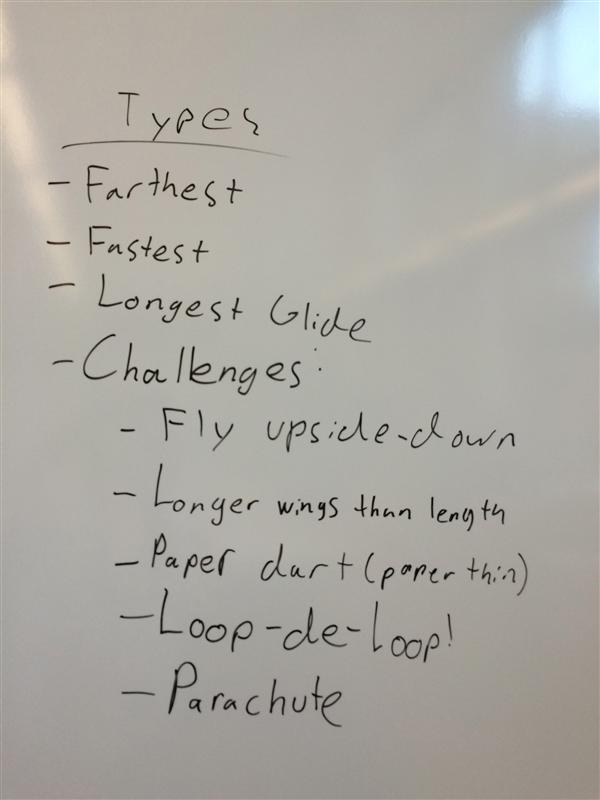 Types
- Farthest
- Fastest
- Longest Glide
- Challenges:
- Fly upside-down
- Longer wings than length
- Paper dart (paper thin)
- Loop-de-Loop!
- Parachute